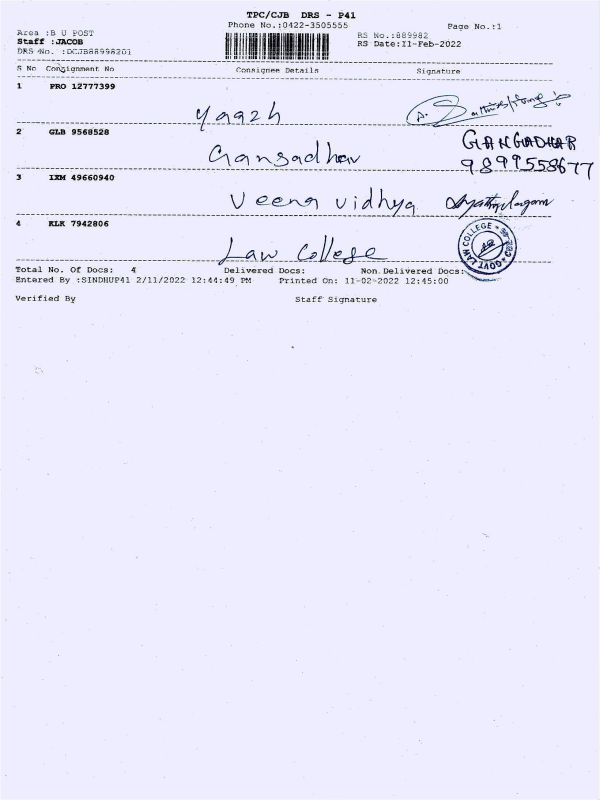 TPC/CJB DRS - P41
Phone No.:0422-3505555
Page No.:1
Area :B U POST
Staff :JACOB
DRS No. :DCJB88998201
RS No.:889982
RS Date:11-Feb-2022
S No Consignment No Consignee Details Signature
1 PRO 12777399
Yaazh
2 GLB 9568528
Gangadhar
GANGADHAR
9899558677
3 IXM 49660940
Veena vidhya
4 KLK 7942806
Law College
GOVT LAW COLLEGE
Total No. Of Docs: 4 Delivered Docs: Non Delivered Docs:
Entered By :SINDHUP41 2/11/2022 12:44:49 PM Printed On: 11-02-2022 12:45:00
Verified By Staff Signature